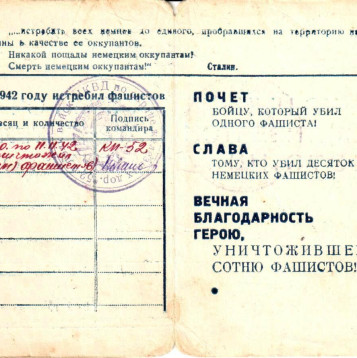 „...истребить всех немцев до единого, пробравшихся на территорию
в качестве ее оккупантов.
Никакой пощады немецким оккупантам!
Смерть немецким оккупантам!"
Сталин.
1942 году истребил фашистов
и количество
Подпись командира
по 11.11.42
КП-52
ПОЧЕТ
БОЙЦУ, КОТОРЫЙ УБИЛ
ОДНОГО ФАШИСТА!
СЛАВА
ТОМУ, КТО УБИЛ ДЕСЯТОК
НЕМЕЦКИХ ФАШИСТОВ!
ВЕЧНАЯ
БЛАГОДАРНОСТЬ
ГЕРОЮ,
УНИЧТОЖИВШЕ
СОТНЮ ФАШИСТОВ!